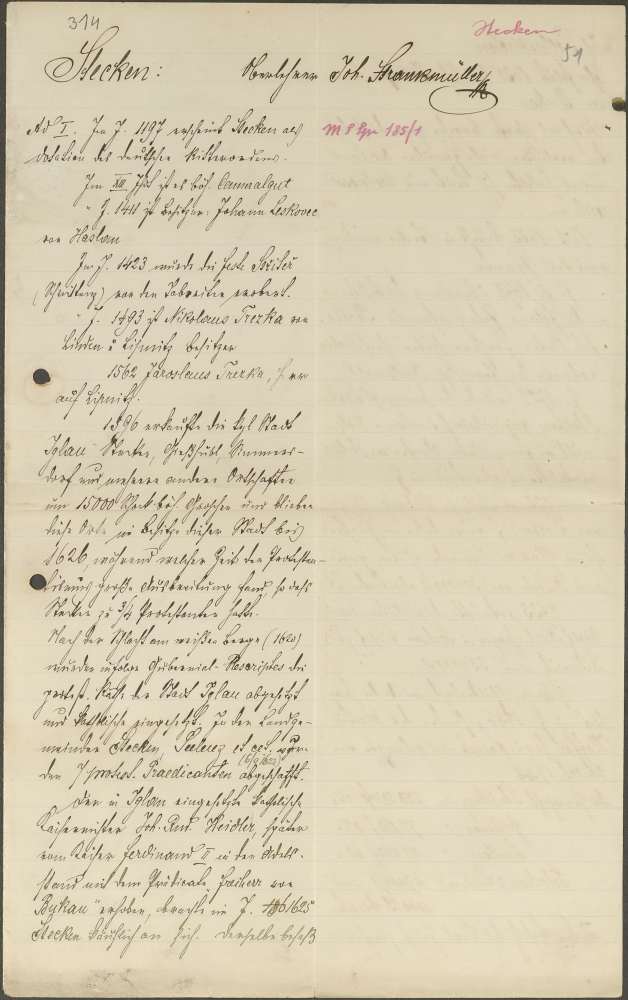 314
Stecken
51
Stecken: Oberlehrer Joh. Strankmüller
Ad I. Im J. 1197 erscheint Stecken als
M 8 Spr 185/1
Dotation des deutschen Ritterordens.
Im XIII. Jhdt ist es böh. Cameralgut
" J. 1411 ist Besitzer: Johann Leskovec
von Haslau
Im J. 1423 wurde die Feste
von den Taboriten erobert.
" J. 1493 ist Nikolaus Trezka von
Linden u Lipnitz Besitzer
1562 Jaroslaus Trezka, Herr
auf Lipnitz.
1596 erkaufte die kgl Stadt
Iglau Stecken, Gießhübl, Simmers-
dorf und mehrere andere Ortschaften
um 15000 Schock böh. Groschen und blieben
diese Orte im Besitze dieser Stadt bis
1626, während welcher Zeit der Protestan-
tismus große Ausbreitung fand, so daß
Stecken zu 3/4 Protestanten hatte.
Nach der Schlacht am weißen Berge (1620)
wurden infolge Gubernial-Rescriptes die
protest. Räthe der Stadt Iglau abgesetzt
und katholische eingesetzt. In den Landge-
meinden Stecken, et cet. wur-
den 7 protest. Praedicanten abgeschafft.
Der in Iglau eingesetzte katholische
Joh. Rud. Heidler, später
vom Kaiser Ferdinand II in den Adels-
stand mit dem Prädicate "Freiherr von
Bukau" erhoben, brachte im J. 1625
Stecken käuflich an sich. Derselbe besaß